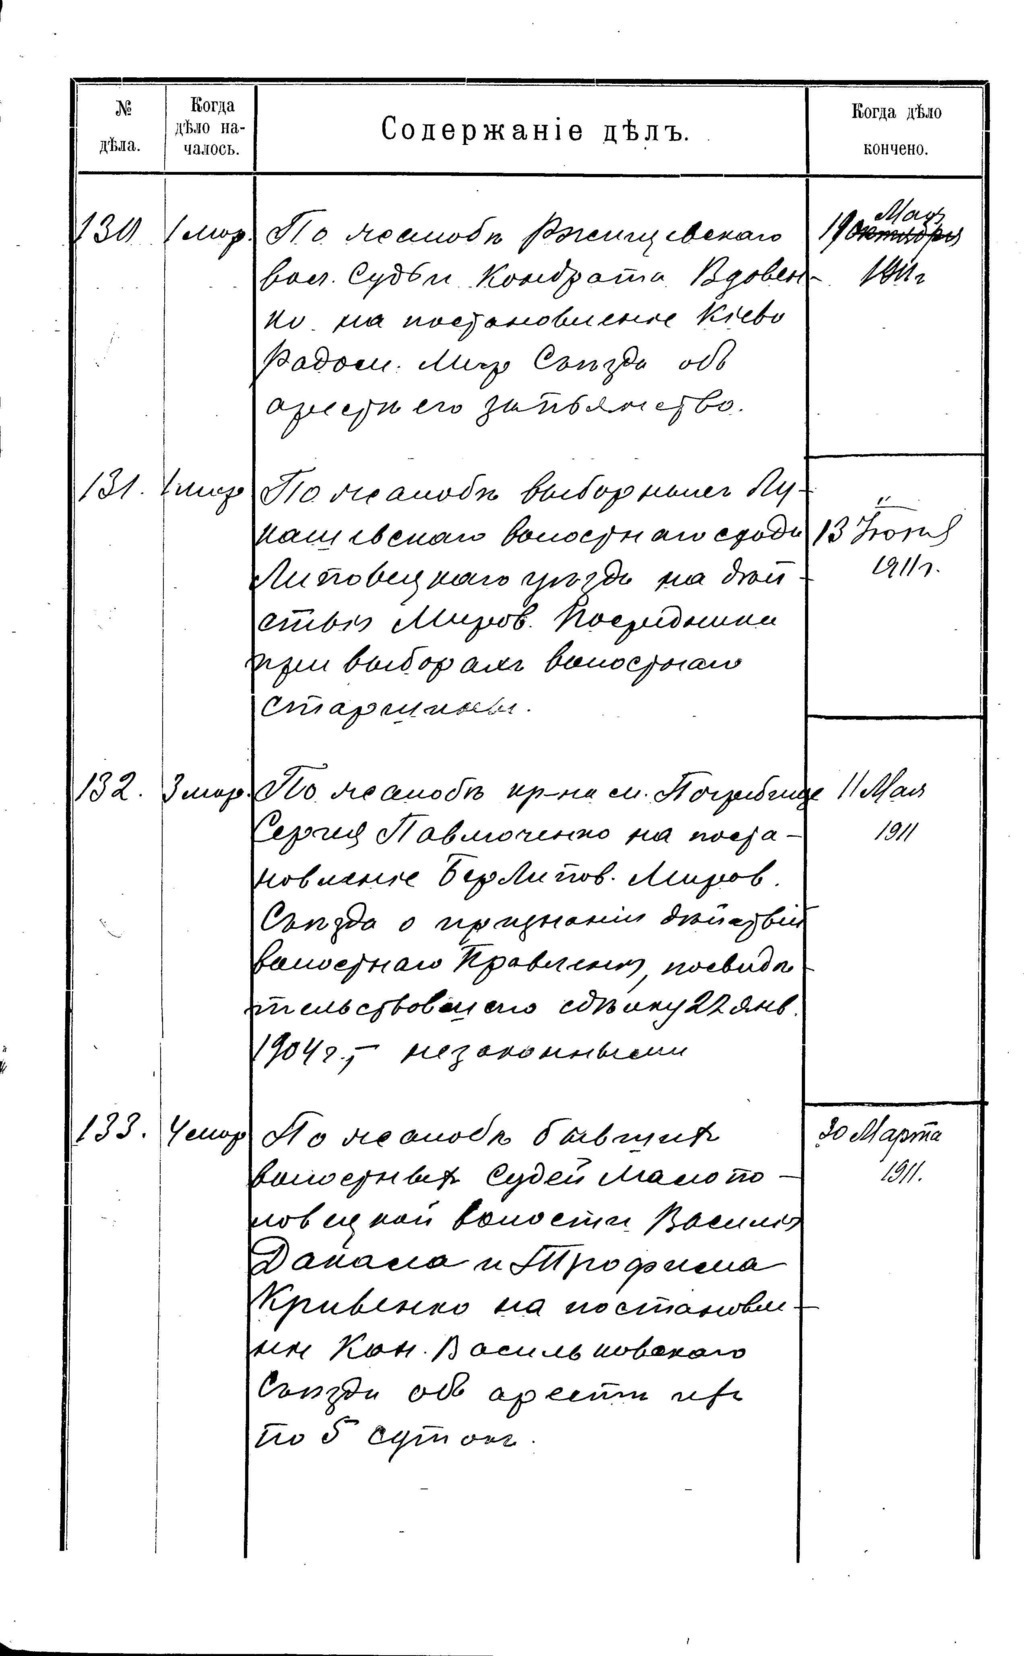 № дѣла.
Когда дѣло на-
чалось.
Содержаніе дѣлъ.
Когда дѣло
кончено.
130 1 мар. По жалобѣ Ржищевскаго
вол. Судьи Кондрата Вдовен-
ко на постановленіе Кіево
Радом. Мир Съѣзда объ
арестѣ его за пьянство.
19 октября Мая
1911 г
131. 1 мар По жалобѣ выборныхъ Лу-
кашевскаго волостнаго схода
Липовецкаго уѣзда на дѣй-
ствія Миров. Посредника
при выборахъ волостнаго
старшины.
13 Іюня
1911 г.
132. 3 мар. По жалобѣ кр-на м. Погребище
Сергія Павлюченко на поста-
новленіе БерЛипов. Миров.
Съѣзда о признаніи дѣйствій
волостнаго Правленія, посвидѣ-
тельствовашаго сдѣлку 22 Янв.
1904 г., - незаконными
11 Мая
1911
133. 4 мар По жалобѣ бывшихъ
волостныхъ Судей Малопо-
ловецкой волости Василія
Данала и Трофима
Кривенко на постановле-
ніе Кан. Васильковскаго
Съѣзда объ арестѣ ихъ
по 5 сутокъ.
30 Марта
1911.